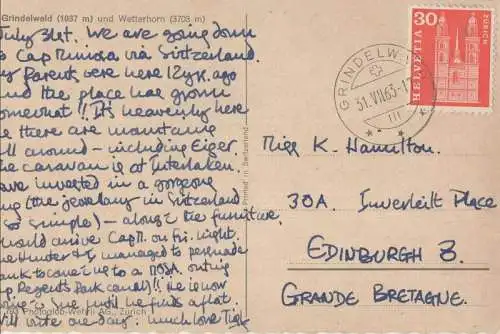 Grindelwald (1037 m) und Wetterhorn (3703 m)
July 31st. We are going down
to Cap Mimosa via Switzerland.
My Parents were here 12 yr. ago
and the place has grown
somewhat!! It's heavenly here
as there are mountains
all around – including Eiger.
The caravan is at Interlaken.
Have invested in a gorgeous
in Switzerland
so simple) – along the furniture.
Should arrive Cap M. on Fri. night.
& I managed to persuade
to come up to a outing
Regents Park canal)!! He is now
until he finds a flat.
Will write one day. Much love
Photoglob-Wehrli AG., Zürich
Printed in Switzerland
ZÜRICH
30
HELVETIA
GRINDELWALD
31.VII.63-1
Miss K. Hamilton.
30A. Inverleith Place
EDINBURGH 3.
GRANDE BRETAGNE.